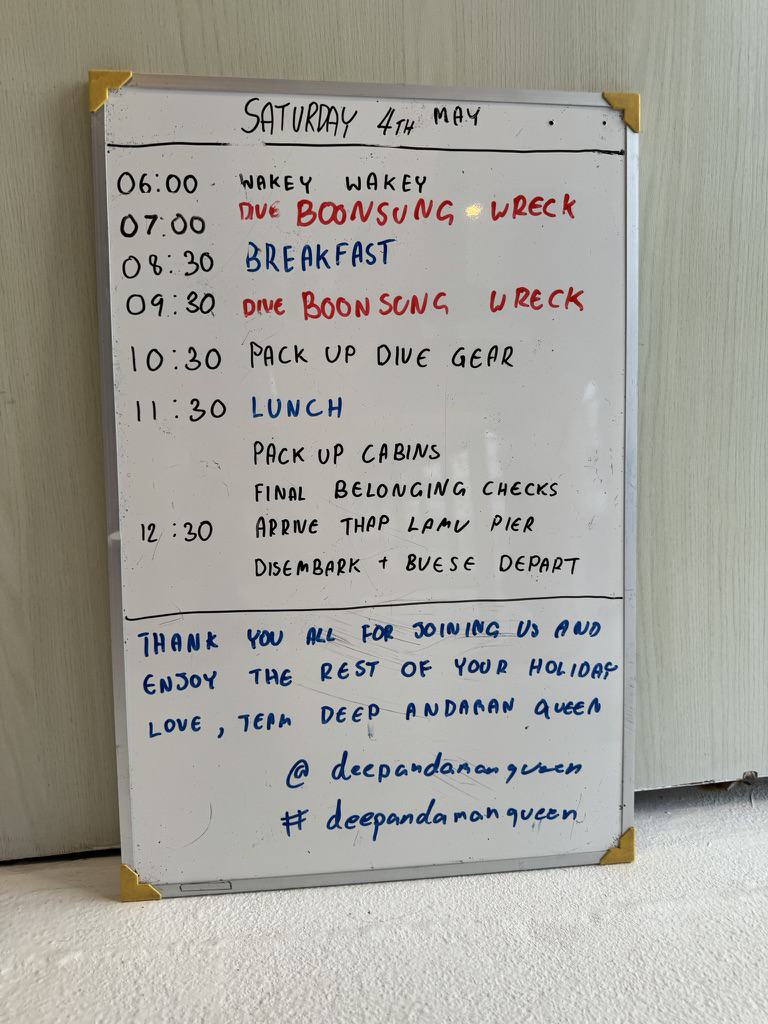 SATURDAY 4TH MAY
06:00 WAKEY WAKEY
07:00 DIVE BOONSUNG WRECK
08:30 BREAKFAST
09:30 DIVE BOONSUNG WRECK
10:30 PACK UP DIVE GEAR
11:30 LUNCH
PACK UP CABINS
FINAL BELONGING CHECKS
12:30 ARRIVE THAP LAMU PIER
DISEMBARK + BUESE DEPART
THANK YOU ALL FOR JOINING US AND
ENJOY THE REST OF YOUR HOLIDAY
LOVE, TEAM DEEP ANDAMAN QUEEN
@ deepandamanqueen
# deepandamanqueen